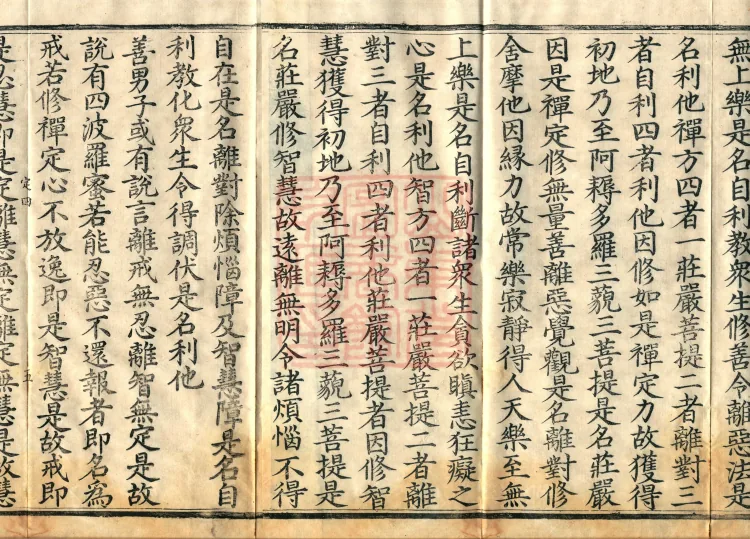 無上樂是名自利教衆生修善令離惡法是
名利他禪方四者一莊嚴菩提二者離對三
者自利四者利他因修如是禪定力故獲得
初地乃至阿耨多羅三藐三菩提是名莊嚴
因是禪定修無量善離惡覺觀是名離對修
舍摩他因緣力故常樂寂靜得人天樂至無
上樂是名自利斷諸衆生貪欲瞋恚狂癡之
心是名利他智方四者一莊嚴菩提二者離
對三者自利四者利他莊嚴菩提者因修智
慧獲得初地乃至阿耨多羅三藐三菩提是
名莊嚴修智慧故遠離無明令諸煩惱不得
自在是名離對除煩惱障及智慧障是名自
利教化衆生令得調伏是名利他
善男子或有說言離戒無忍離智無定是故
說有四波羅蜜若能忍惡不還報者即名爲
戒若修禪定心不放逸即是智慧是故戒即
定四
五
是忍慧即是定離慧無定離定無慧是故慧